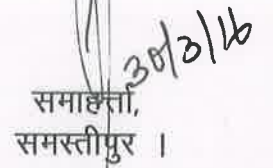 30/3/16
समाहर्त्ता,
समस्तीपुर ।